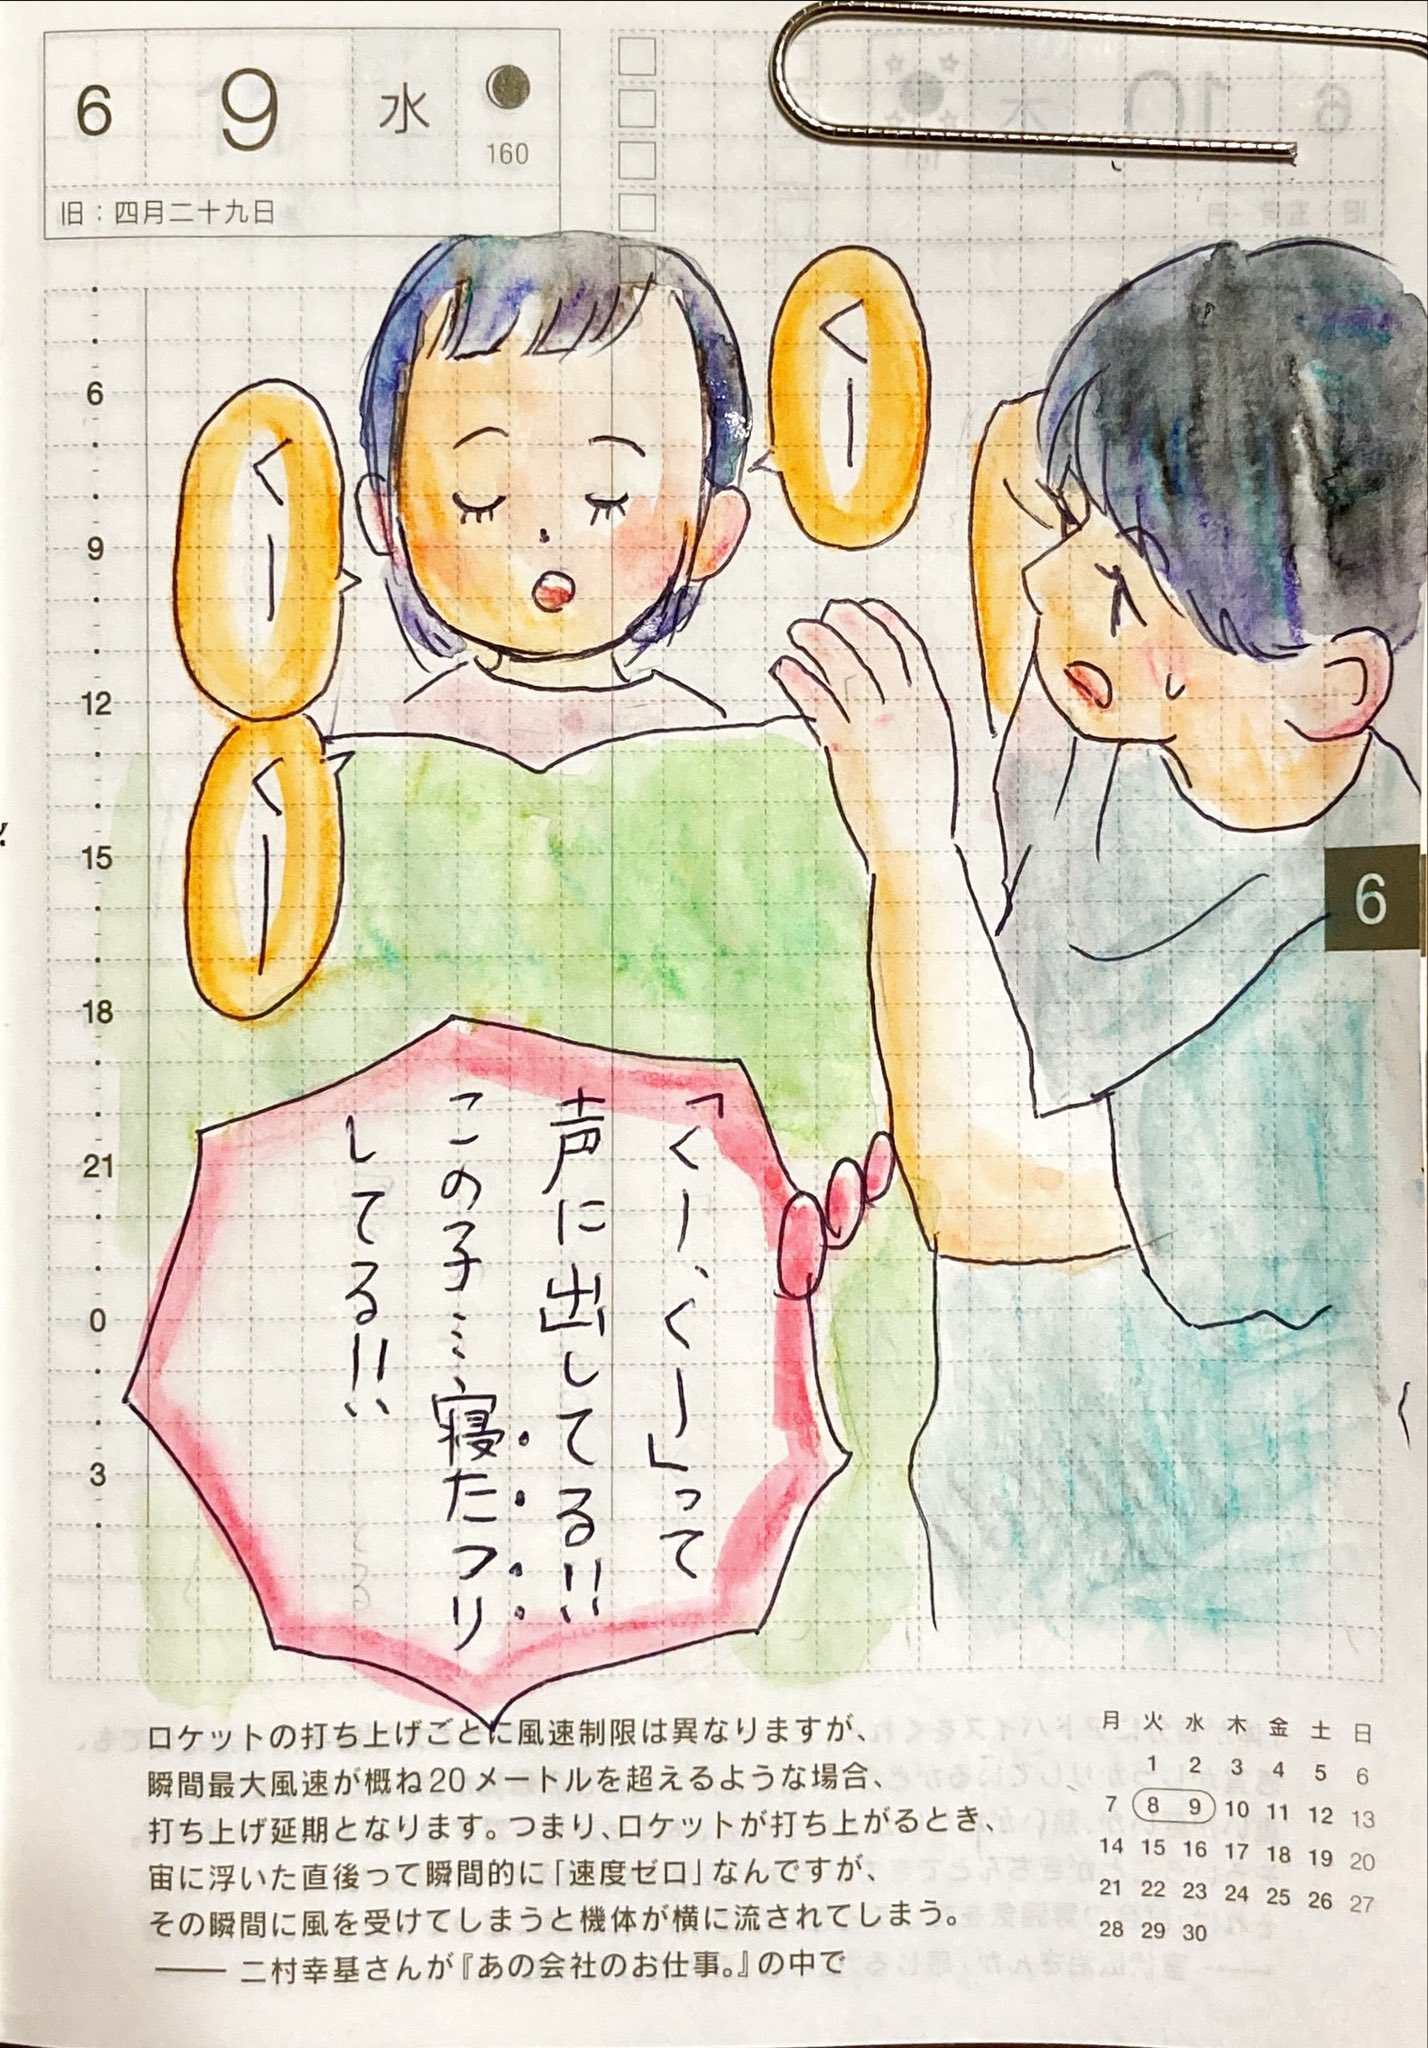 6 9 水
160
旧：四月二十九日
くー
くー
くー
6
9
12
15
18
21
0
3
6
「くー、くー」って
声に出してる!!
この子…、寝たフリ
してる!!
ロケットの打ち上げごとに風速制限は異なりますが、
瞬間最大風速が概ね20メートルを超えるような場合、
打ち上げ延期となります。つまり、ロケットが打ち上がるとき、
宙に浮いた直後って瞬間的に「速度ゼロ」なんですが、
その瞬間に風を受けてしまうと機体が横に流されてしまう。
―― 二村幸基さんが『あの会社のお仕事。』の中で
月 火 水 木 金 土 日
1 2 3 4 5 6
7 8 9 10 11 12 13
14 15 16 17 18 19 20
21 22 23 24 25 26 27
28 29 30